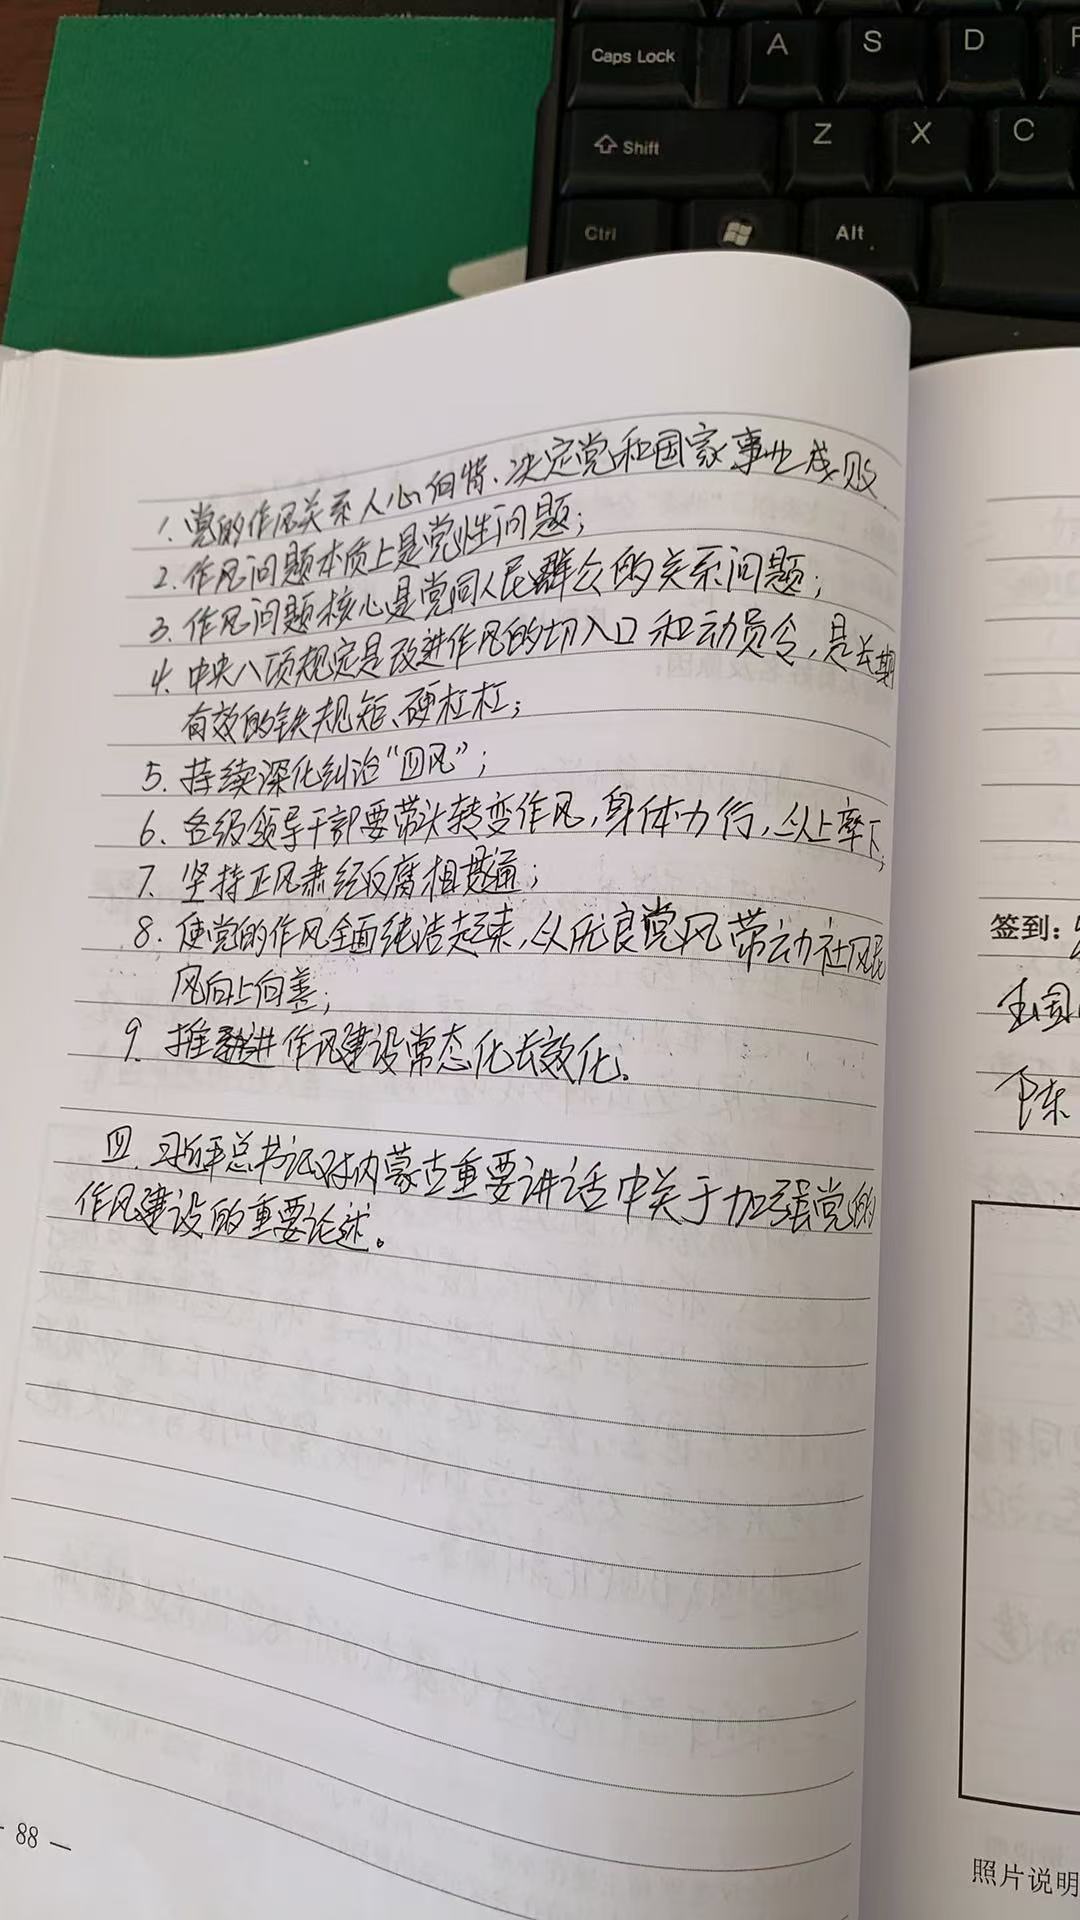 Caps Lock
A
S
D
Shift
Z
X
C
Ctrl
Alt
1. 党的作风关系人心向背、决定党和国家事业成败
2. 作风问题本质上是党性问题；
3. 作风问题核心是党同人民群众的关系问题；
4. 中央八项规定是改进作风的切入口和动员令，是长期
有效的铁规矩、硬杠杠；
5. 持续深化纠治“四风”；
6. 各级领导干部要带头转变作风，身体力行，以上率下；
7. 坚持正风肃纪反腐相贯通；
8. 使党的作风全面纯洁起来，以优良党风带动社风民
风向上向善；
9. 推进作风建设常态化长效化.
四. 习近平总书记对内蒙古重要讲话中关于加强党的
作风建设的重要论述。
88 —
签到：
陈
照片说明